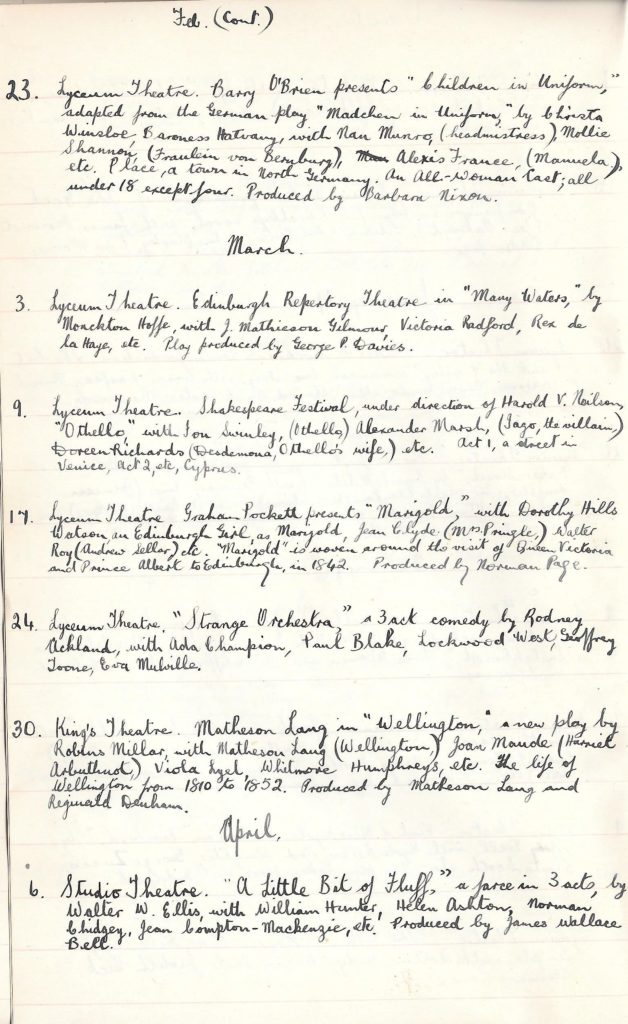 Feb. (Cont.)
23. Lyceum Theatre. Barry O'Brien presents "Children in Uniform,"
adapted from the German play "Madchen in Uniform," by Christa
Winsloe, Baroness Hatvany, with Nan Munro, (headmistress), Mollie
Shannon, (Fraulein von Bernburg), Alexis France, (Manuela),
etc. Place, a town in North Germany. An All-Woman Cast; all
under 18 except four. Produced by Barbara Nixon.
March.
3. Lyceum Theatre. Edinburgh Repertory Theatre in "Many Waters," by
Monckton Hoffe, with J. Mathieson Gilmour, Victoria Radford, Rex de
la Haye, etc. Play produced by George P. Davies.
9. Lyceum Theatre. Shakespeare Festival, under direction of Harold V. Neilson,
"Othello," with Ion Swinley, (Othello) Alexander Marsh, (Iago, the villain,)
Doreen Richards (Desdemona, Othello's wife,) etc. Act 1, a street in
Venice, Act 2, etc, Cyprus.
17. Lyceum Theatre Graham Pockett presents "Marigold," with Dorothy Hills
Watson, an Edinburgh Girl, as Marigold, Jean Clyde, (Mrs. Pringle,) Walter
Roy (Andrew Sellar) etc. "Marigold" is woven around the visit of Queen Victoria
and Prince Albert to Edinburgh, in 1842. Produced by Norman Page.
24. Lyceum Theatre, "Strange Orchestra," a 3 act comedy by Rodney
Ackland, with Ada Champion, Paul Blake, Lockwood West, Geoffrey
Toone, Eva Mulville.
30. King's Theatre. Matheson Lang in "Wellington," a new play by
Robins Millar, with Matheson Lang (Wellington,) Joan Maude (Harriet
Arbuthnot,) Viola Lyel, Whitmore Humphreys, etc. The life of
Wellington from 1810 to 1852. Produced by Matheson Lang and
Reginald Denham.
April.
6. Studio Theatre. "A Little Bit of Fluff," a farce in 3 acts, by
Walter W. Ellis, with William Hunter, Helen Ashton, Norman
Chidgey, Jean Compton-Mackenzie, etc. Produced by James Wallace
Bell.